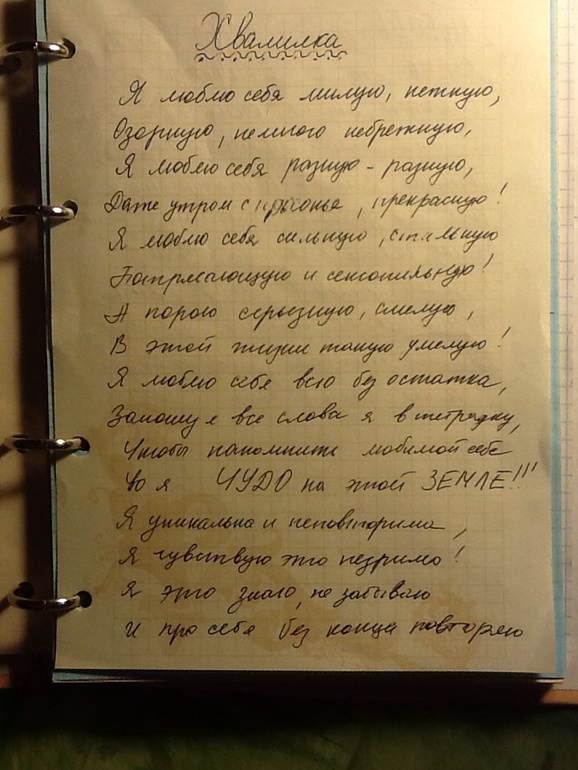 Хвалилка
Я люблю себя милую, нежную,
Озорную, немного небрежную,
Я люблю себя разную - разную,
Даже утром спросонья, прекрасную!
Я люблю себя сильную, стильную
Потрясающую и сексапильную!
А порою серьезную, смелую,
В этой жизни такую умелую!
Я люблю себя всю без остатка,
Запишу все слова я в тетрадку,
Чтобы напомнить любимой себе
Что я ЧУДО на этой ЗЕМЛЕ!!!
Я уникальна и неповторима,
Я чувствую это незримо!
Я это знаю, не забываю
И про себя без конца повторяю